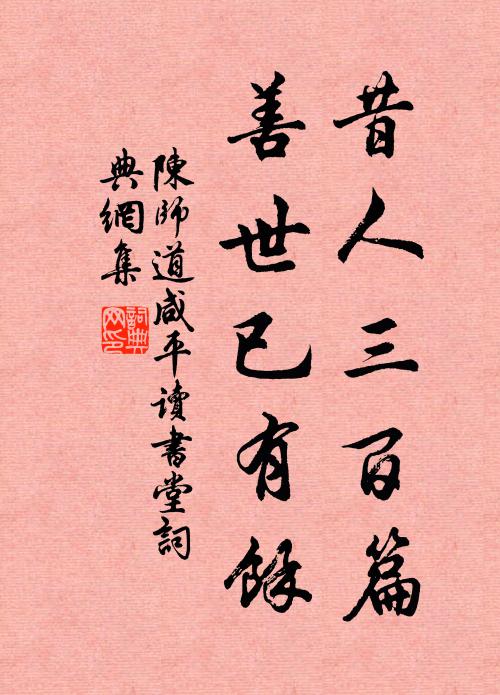 昔人三百篇
善世已有餘
陳師道咸平讀書堂詞
典網集
詞典網印